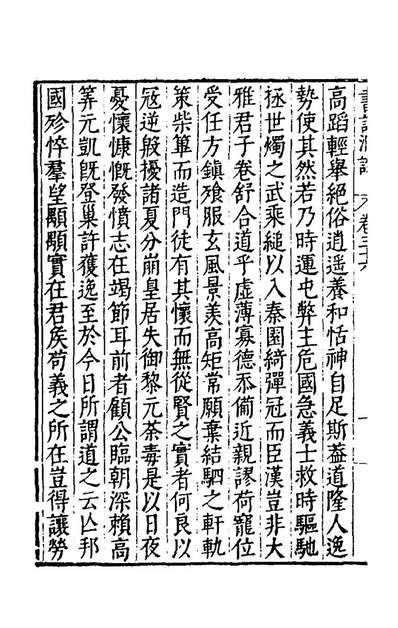 書記洞詮 卷三十六
高蹈輕舉絕俗逍遙養和恬神自足斯蓋道隆人逸
勢使其然若乃時運屯弊主危國急義士救時驅馳
拯世燭之武乘縋以入秦園綺彈冠而臣漢豈非大
雅君子卷舒合道乎虛薄寡德忝備近親謬荷寵位
受任方鎮飡服玄風景羨高矩常願棄結駟之軒軌
策柴篳而造門徒有其懷而無從賢之實者何良以
寇逆殷擾諸夏分崩皇居失御黎元荼毒是以日夜
憂懷慷慨發憤志在竭節耳前者顧公臨朝深賴高
筭元凱旣登巢許獲逸至於今日所謂道之云亾邦
國殄悴羣望顒顒實在君矦苟義之所在豈得讓勞